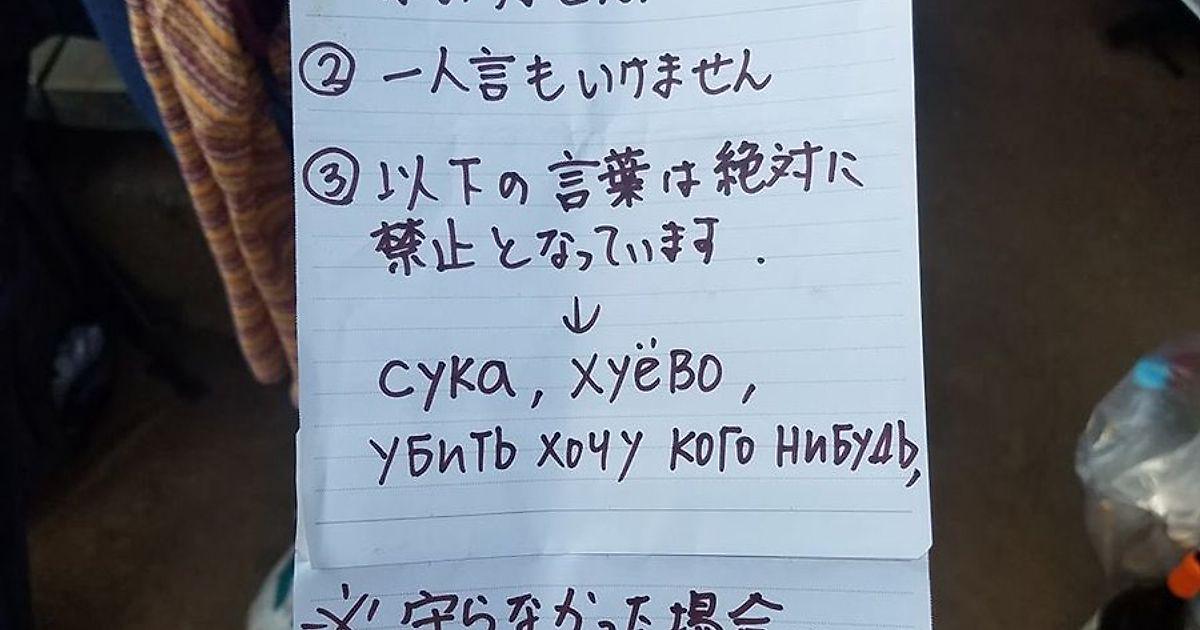 ② 一人言もいけません
③ 以下の言葉は絶対に
禁止となっています.
↓
сука, хуёво,
убить хочу кого нибудь,
※ 守らなかった場合